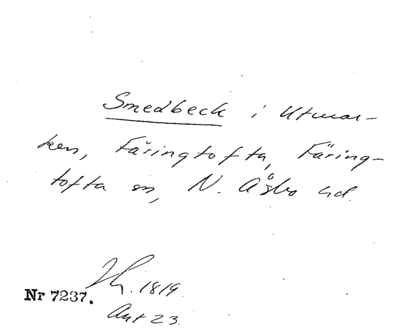 Smedbeck i Utmar-
ken, Färingtofta, Färing-
tofta sn, N. Åsbo hd.
1819.
Nr 7237.
Akt 23